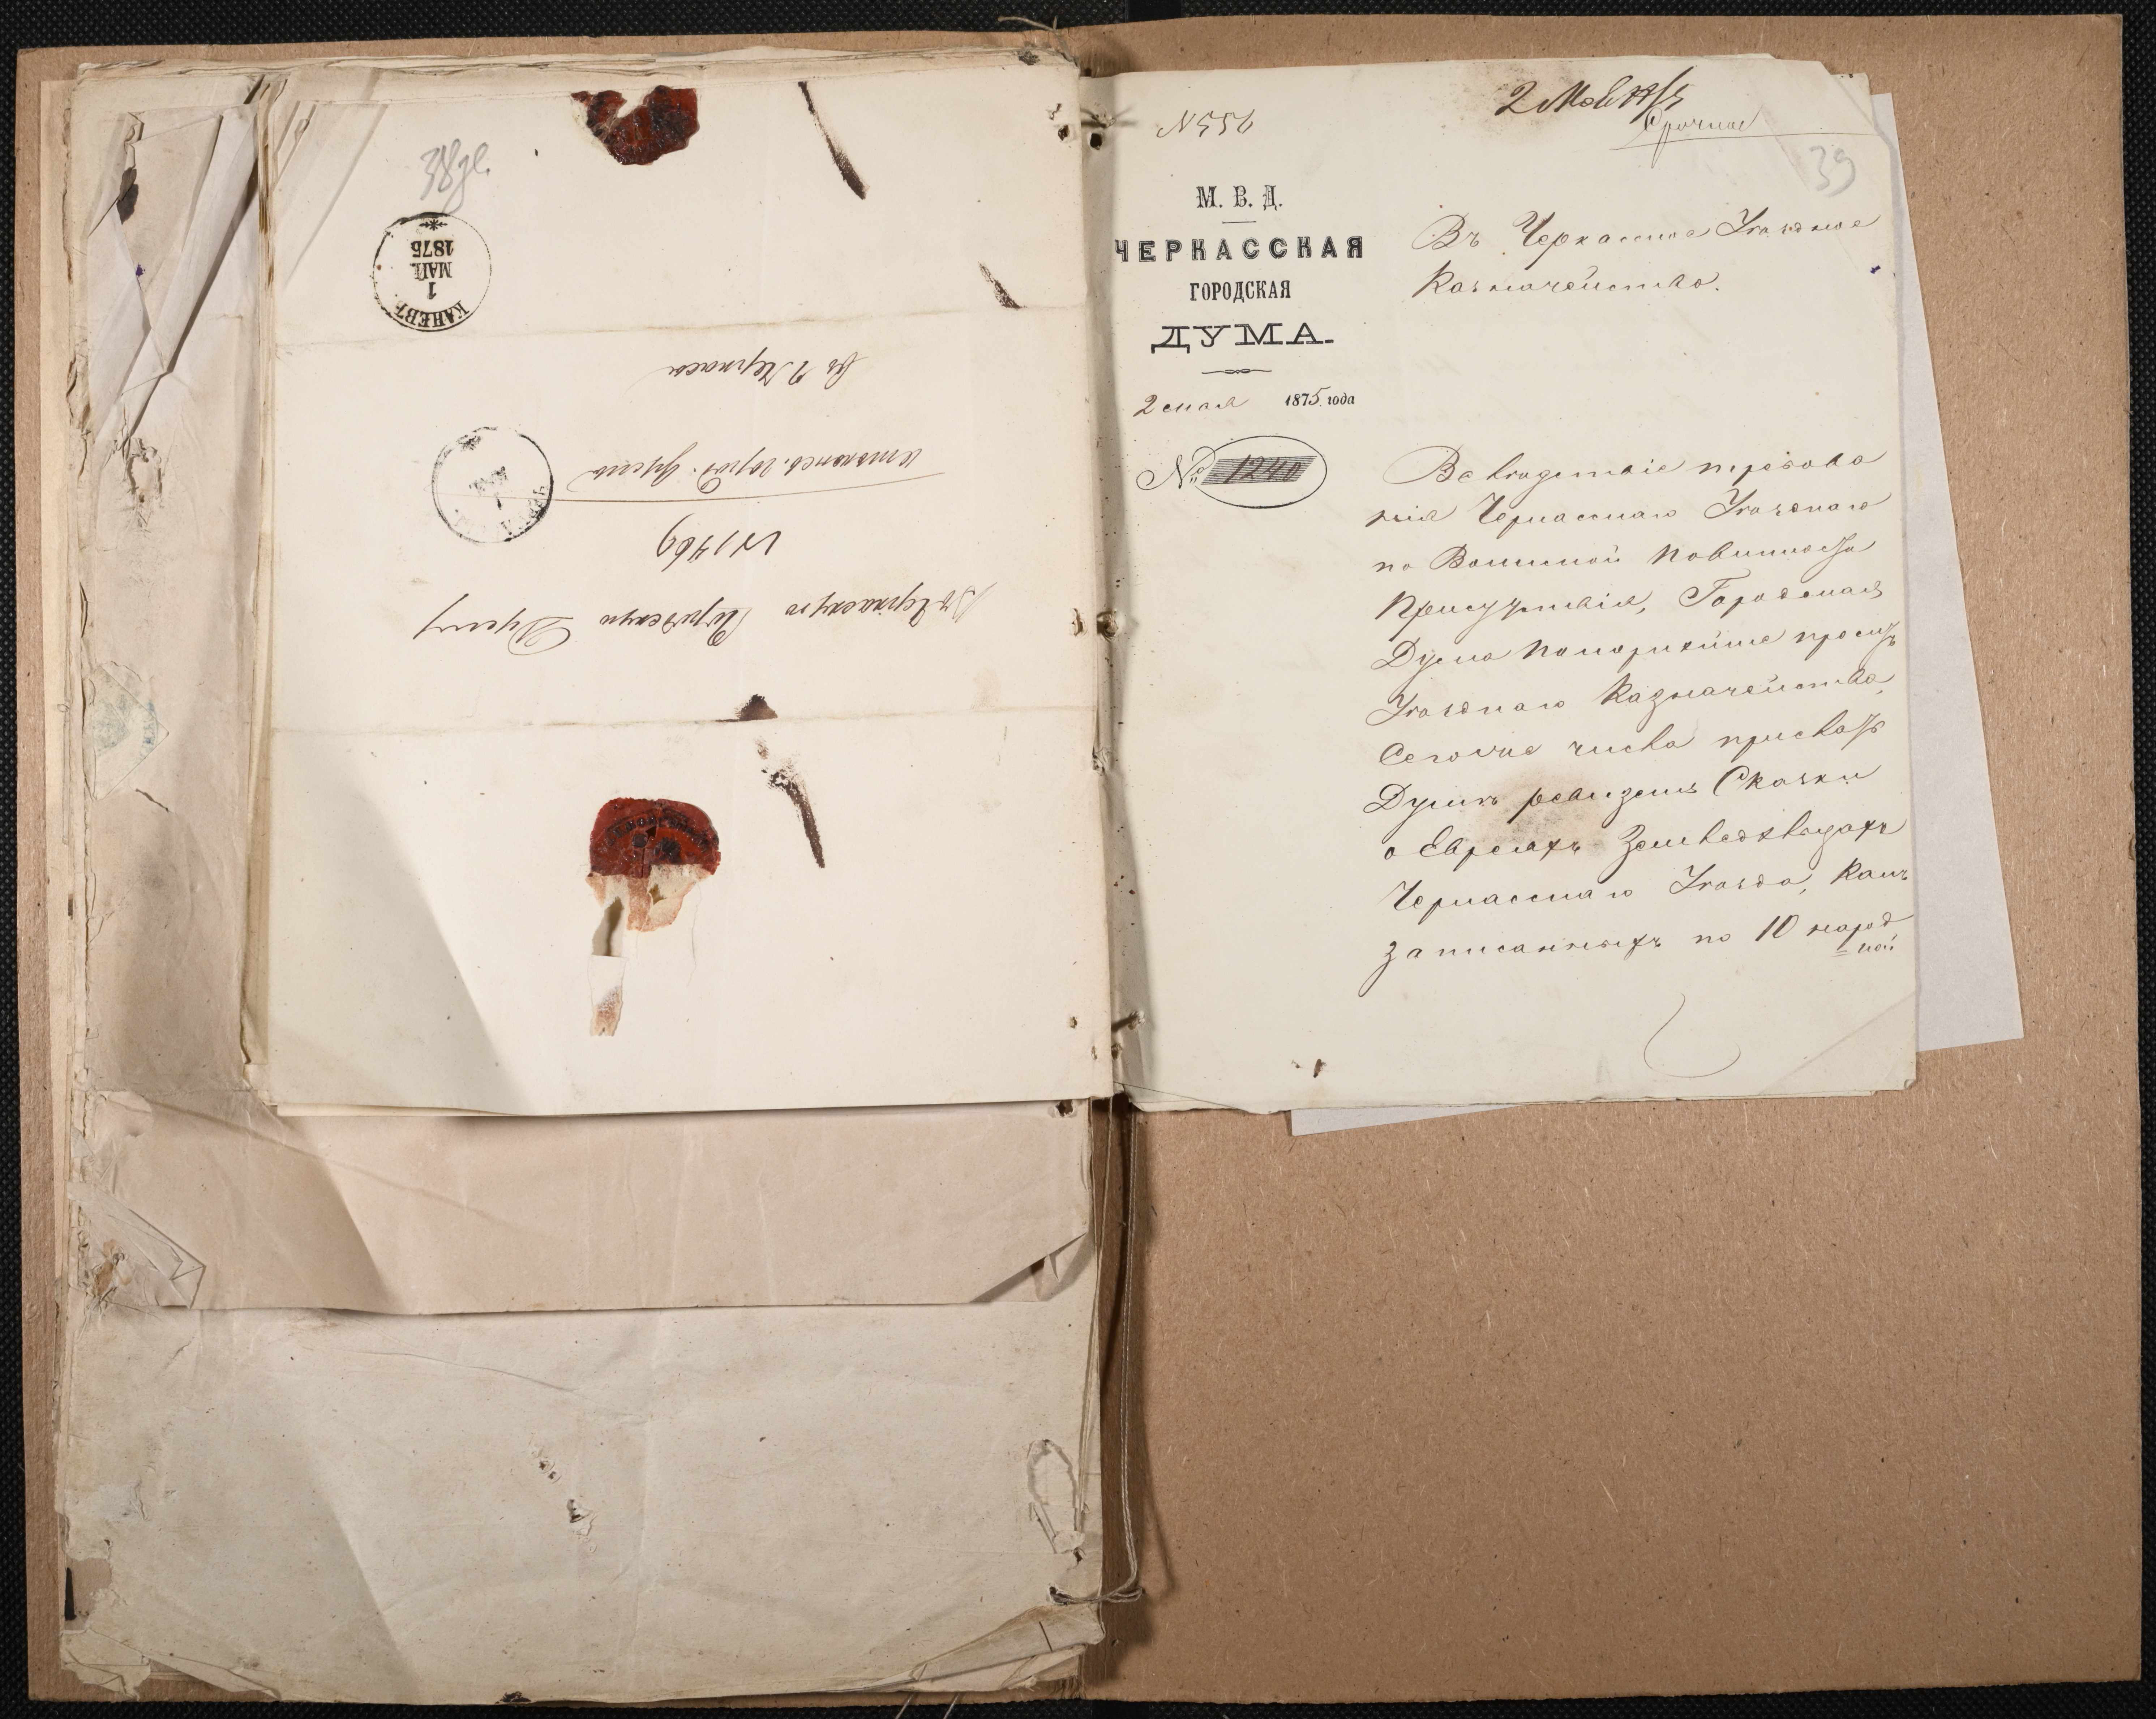 38 зв.
КАНЕВЪ
1
МАЙ
1875
Въ Черкаскую Городскую Думу
N 1469
въ г. Черкасы
N 556
2 Мая 1875
Срочное
39
М. В. Д.
ЧЕРКАССКАЯ
ГОРОДСКАЯ
ДУМА.
2 мая 1875 года
№ 1240
Въ Черкасское Уѣздное
Казначейство.
Вслѣдствіе требова
нія Черкасскаго Уѣзднаго
по Воинской повинности
Присутствія, Городская
Дума покорнѣйше проситъ
Уѣзднаго Казначейства,
Сего числа прислать
Думѣ ревизскія Сказки
о Евреяхъ Земледѣльцахъ
Черкасскаго Уѣзда, какъ
записанныхъ по 10 народ
ной